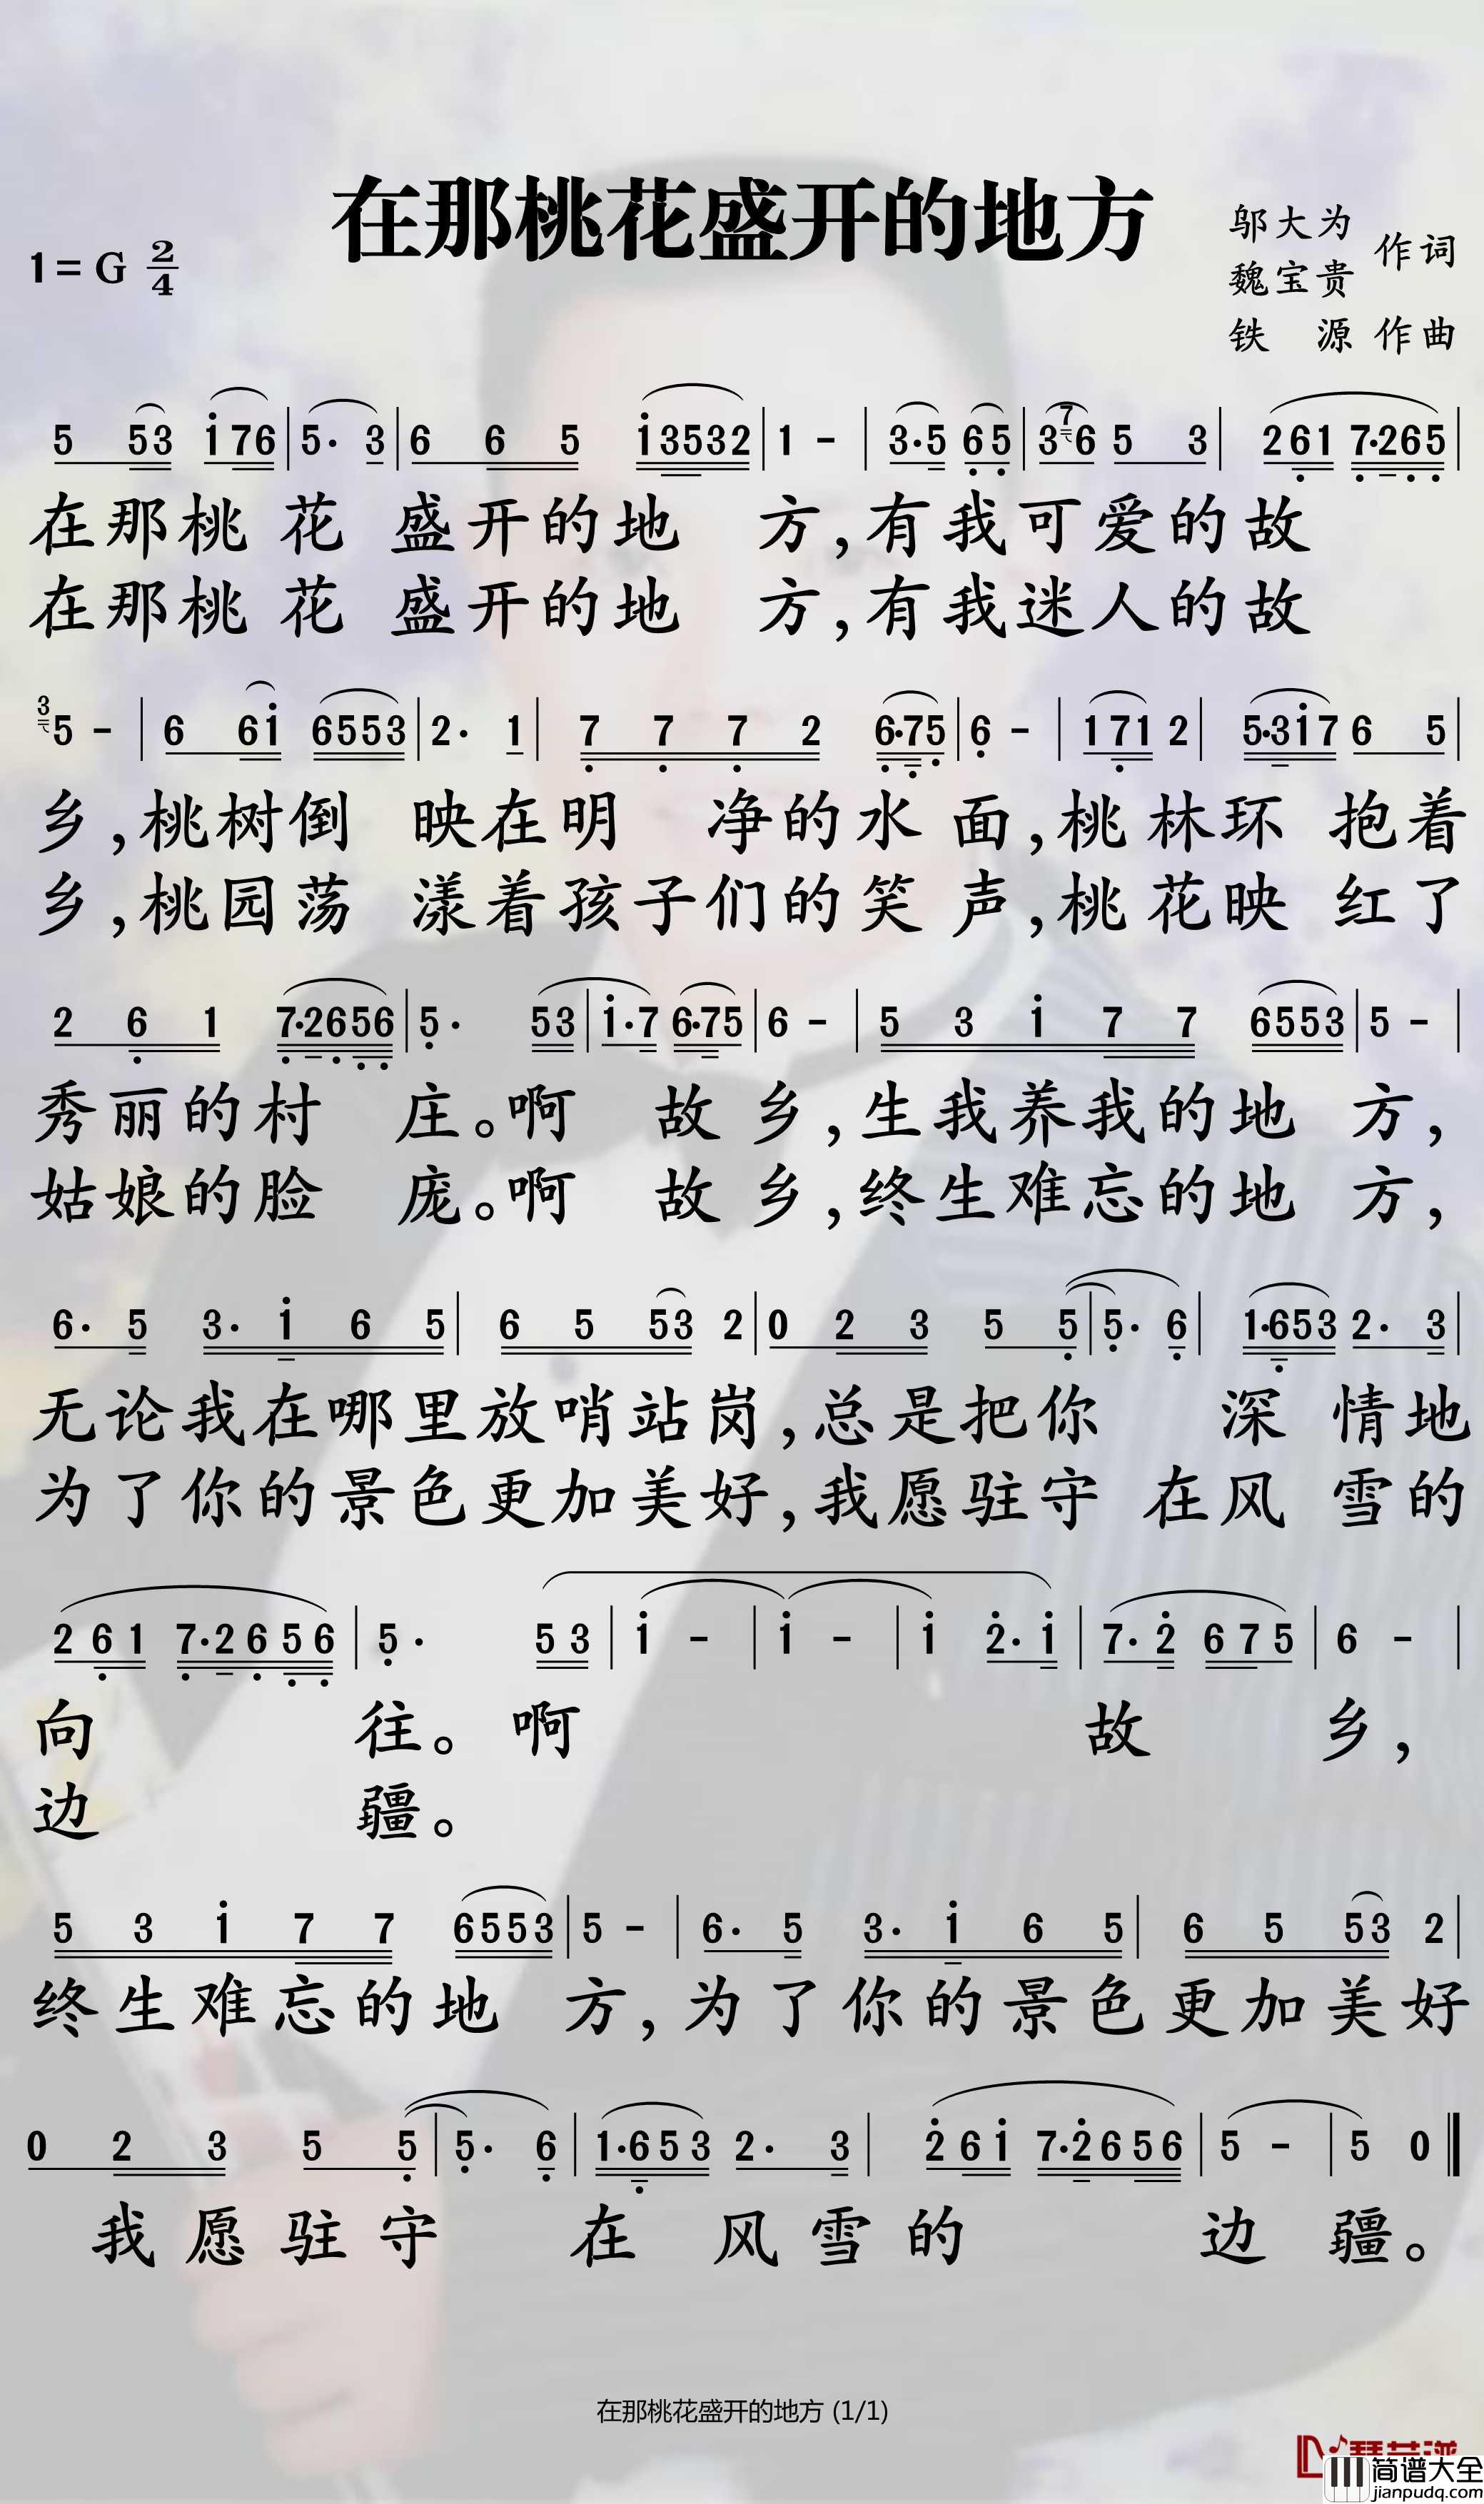 在那桃花盛开的地方
1=G 2/4
邬大为
魏宝贵 作词
铁 源 作曲
5 53 i76 | 5· 3 | 6 6 5 i3532 | 1 - | 3·5 65 | 3 7 6 5 3 | 261 7·265 |
在那桃 花 盛开的地 方,有我可爱的故
在那桃 花 盛开的地 方,有我迷人的故
3 5 - | 6 6i 6553 | 2· 1 | 7 7 7 2 6·75 | 6 - | 171 2 | 5·3i7 6 5 |
乡,桃树倒 映在明 净的水 面,桃林环 抱着
乡,桃园荡 漾着孩子们的笑 声,桃花映 红了
2 6 1 7·2656 | 5· 53 | i·7 6·75 | 6 - | 5 3 i 7 7 6553 | 5 - |
秀丽的村 庄。啊 故 乡,生我养我的地 方,
姑娘的脸 庞。啊 故 乡,终生难忘的地 方,
6· 5 3· i 6 5 | 6 5 53 2 | 0 2 3 5 5 | 5· 6 | 1·653 2· 3 |
无论我在哪里放哨站岗,总是把你 深 情地
为了你的景色更加美好,我愿驻守 在风 雪的
261 7·2656 | 5· 53 | i - | i - | i 2·i | 7·2 675 | 6 - |
向 往。啊 故 乡,
边 疆。
5 3 i 7 7 6553 | 5 - | 6· 5 3· i 6 5 | 6 5 53 2 |
终生难忘的地 方,为了你的景色更加美好
0 2 3 5 5 | 5· 6 | 1·653 2· 3 | 26i 7·2656 | 5 - | 5 0 ‖
我愿驻守 在 风雪的 边 疆。
在那桃花盛开的地方 (1/1)
简谱大全
jianpudq.com